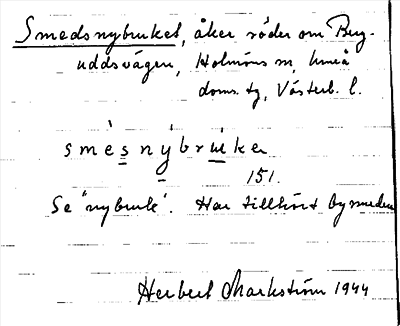 Smedsnybruket, åker söder om Byg-
uddsvägen, Holmöns sn, Umeå
doms. tg, Västerb. l.
smèsnýbrùker
151.
Se "nybruk". Har tillhört bysmeden
Herbert Markström 1944